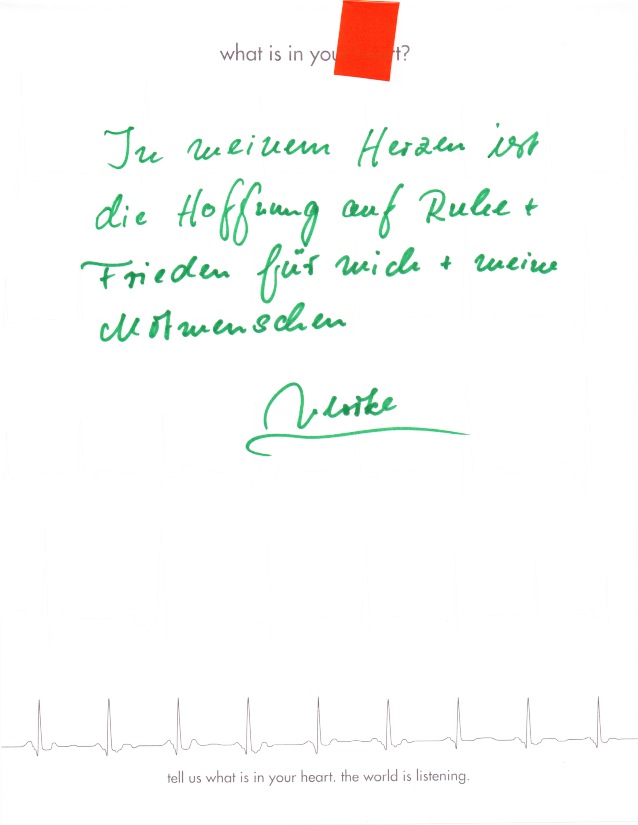 what is in you t?
In meinem Herzen ist
die Hoffnung auf Ruhe +
Frieden für mich + meine
Mitmenschen
Ulrike
tell us what is in your heart. the world is listening.